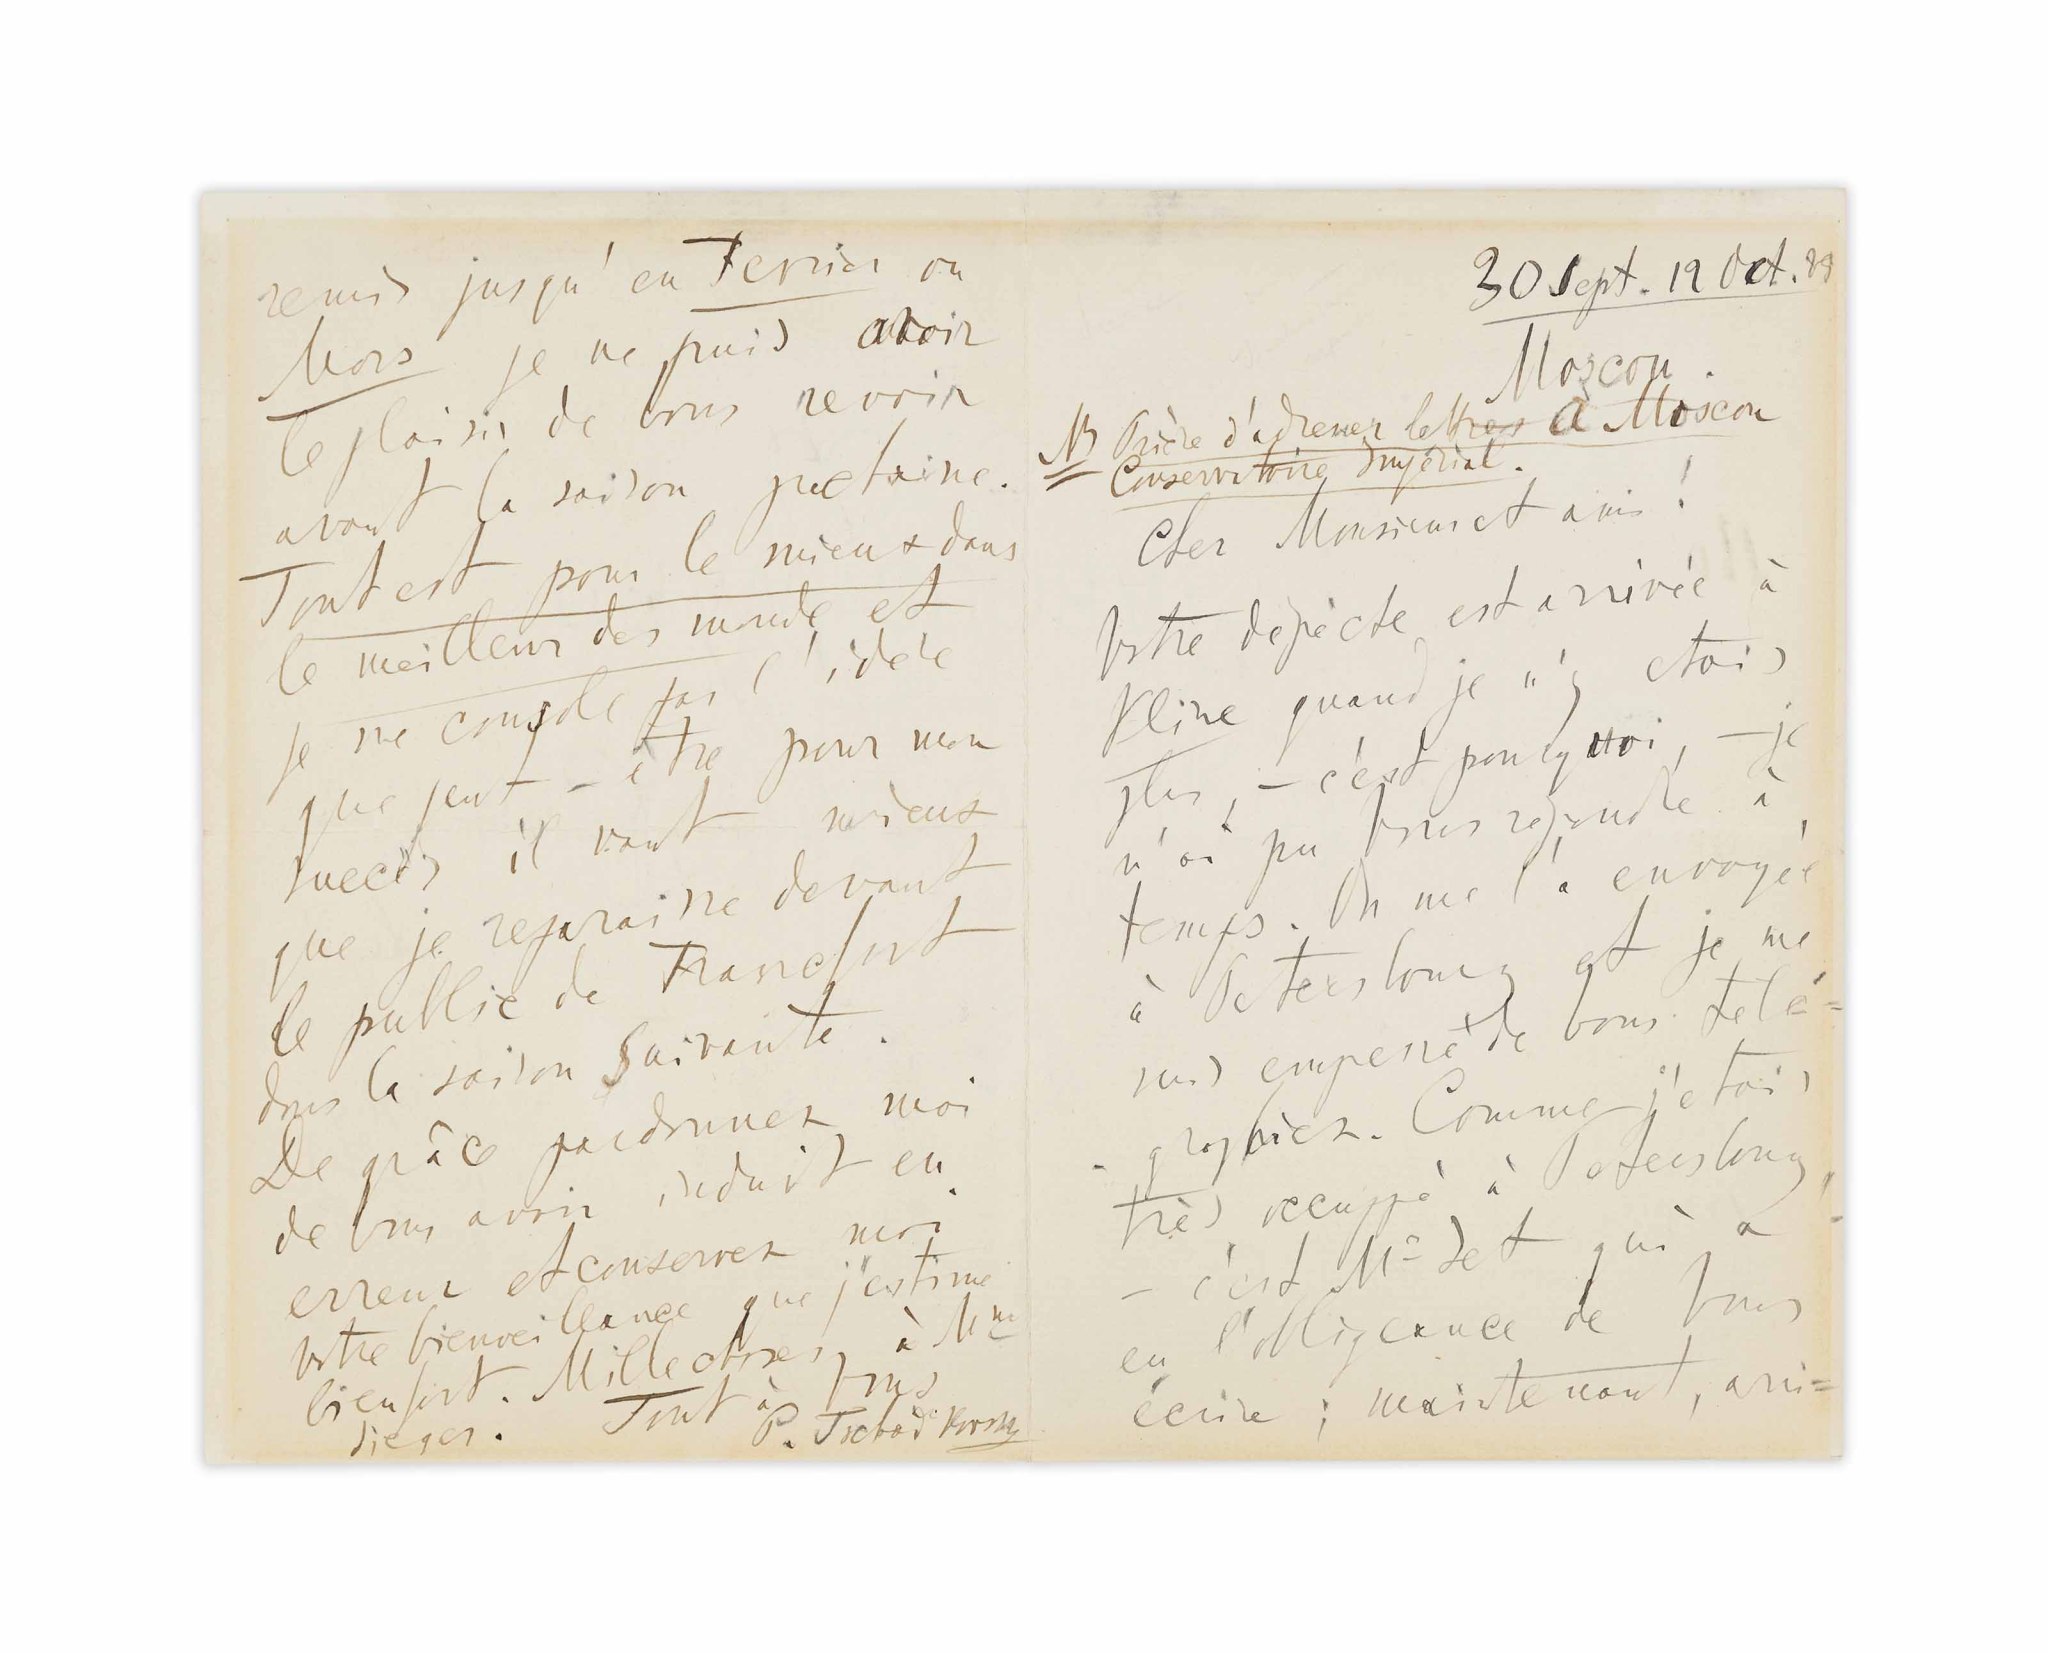 30 Sept. 12 Oct. 89
Moscou.
NB Prière d'adresser lettres à Moscou
Conservatoire Impérial.
Cher Monsieur et ami!
Votre dépèche est arrivée à
Kline quand je n'y etais
plus, – c'est pourquoi, – je
n'ai pu Vous repondre à
temps. On me l'a envoyée
à Petersbourg et je me
suis empressé de Vous télé=
graphier. Comme j'etais
très occuppé à Petersbourg,
– c'est Mr Set qui a
eu l'obligeance de Vous
écrire; maintenant, arri=
remis jusqu'en Fevrier ou
Mars je ne puis avoir
le plaisir de Vous revoir
avant la saison prochaine.
Tout est pour le mieux dans
le meilleur des monde et
je me console par l'ideée
que peut-être pour mon
succès il vaut mieux
que je reparaisse devant
le public de Francfort
dans la saison suivante.
De grâce pardonnez moi
de Vous avoir induit en
erreur et conservez moi
votre bienveillance que j'estime
bien fort. Mille choses à Mme
Sieger. Tout à Vous
P. Tschaïkovsky